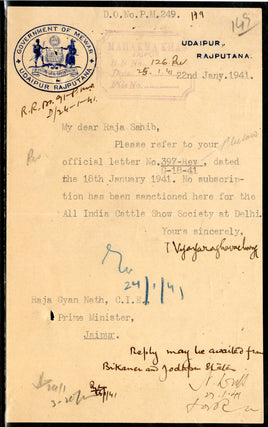 D.O.No.P.M.249.
199
149
GOVERNMENT OF MEWAR
UDAIPUR RAJPUTANA
UDAIPUR,
RAJPUTANA.
MAHAKMA KHAS
126
Date 25.1.41
File No.
22nd Jany.1941.
24-1-41.
My dear Raja Sahib,
Please refer to your
official letter No.397-Rev, dated
the 18th January 1941. No subscrip-
tion has been sanctioned here for the
All India Cattle Show Society at Delhi.
Yours sincerely,
T Vijayaraghavacharya
24/1/41
Raja Gyan Nath, C.I.E.,
Prime Minister,
Jaipur.
Reply may be awaited from
Bikaner and Jodhpur States